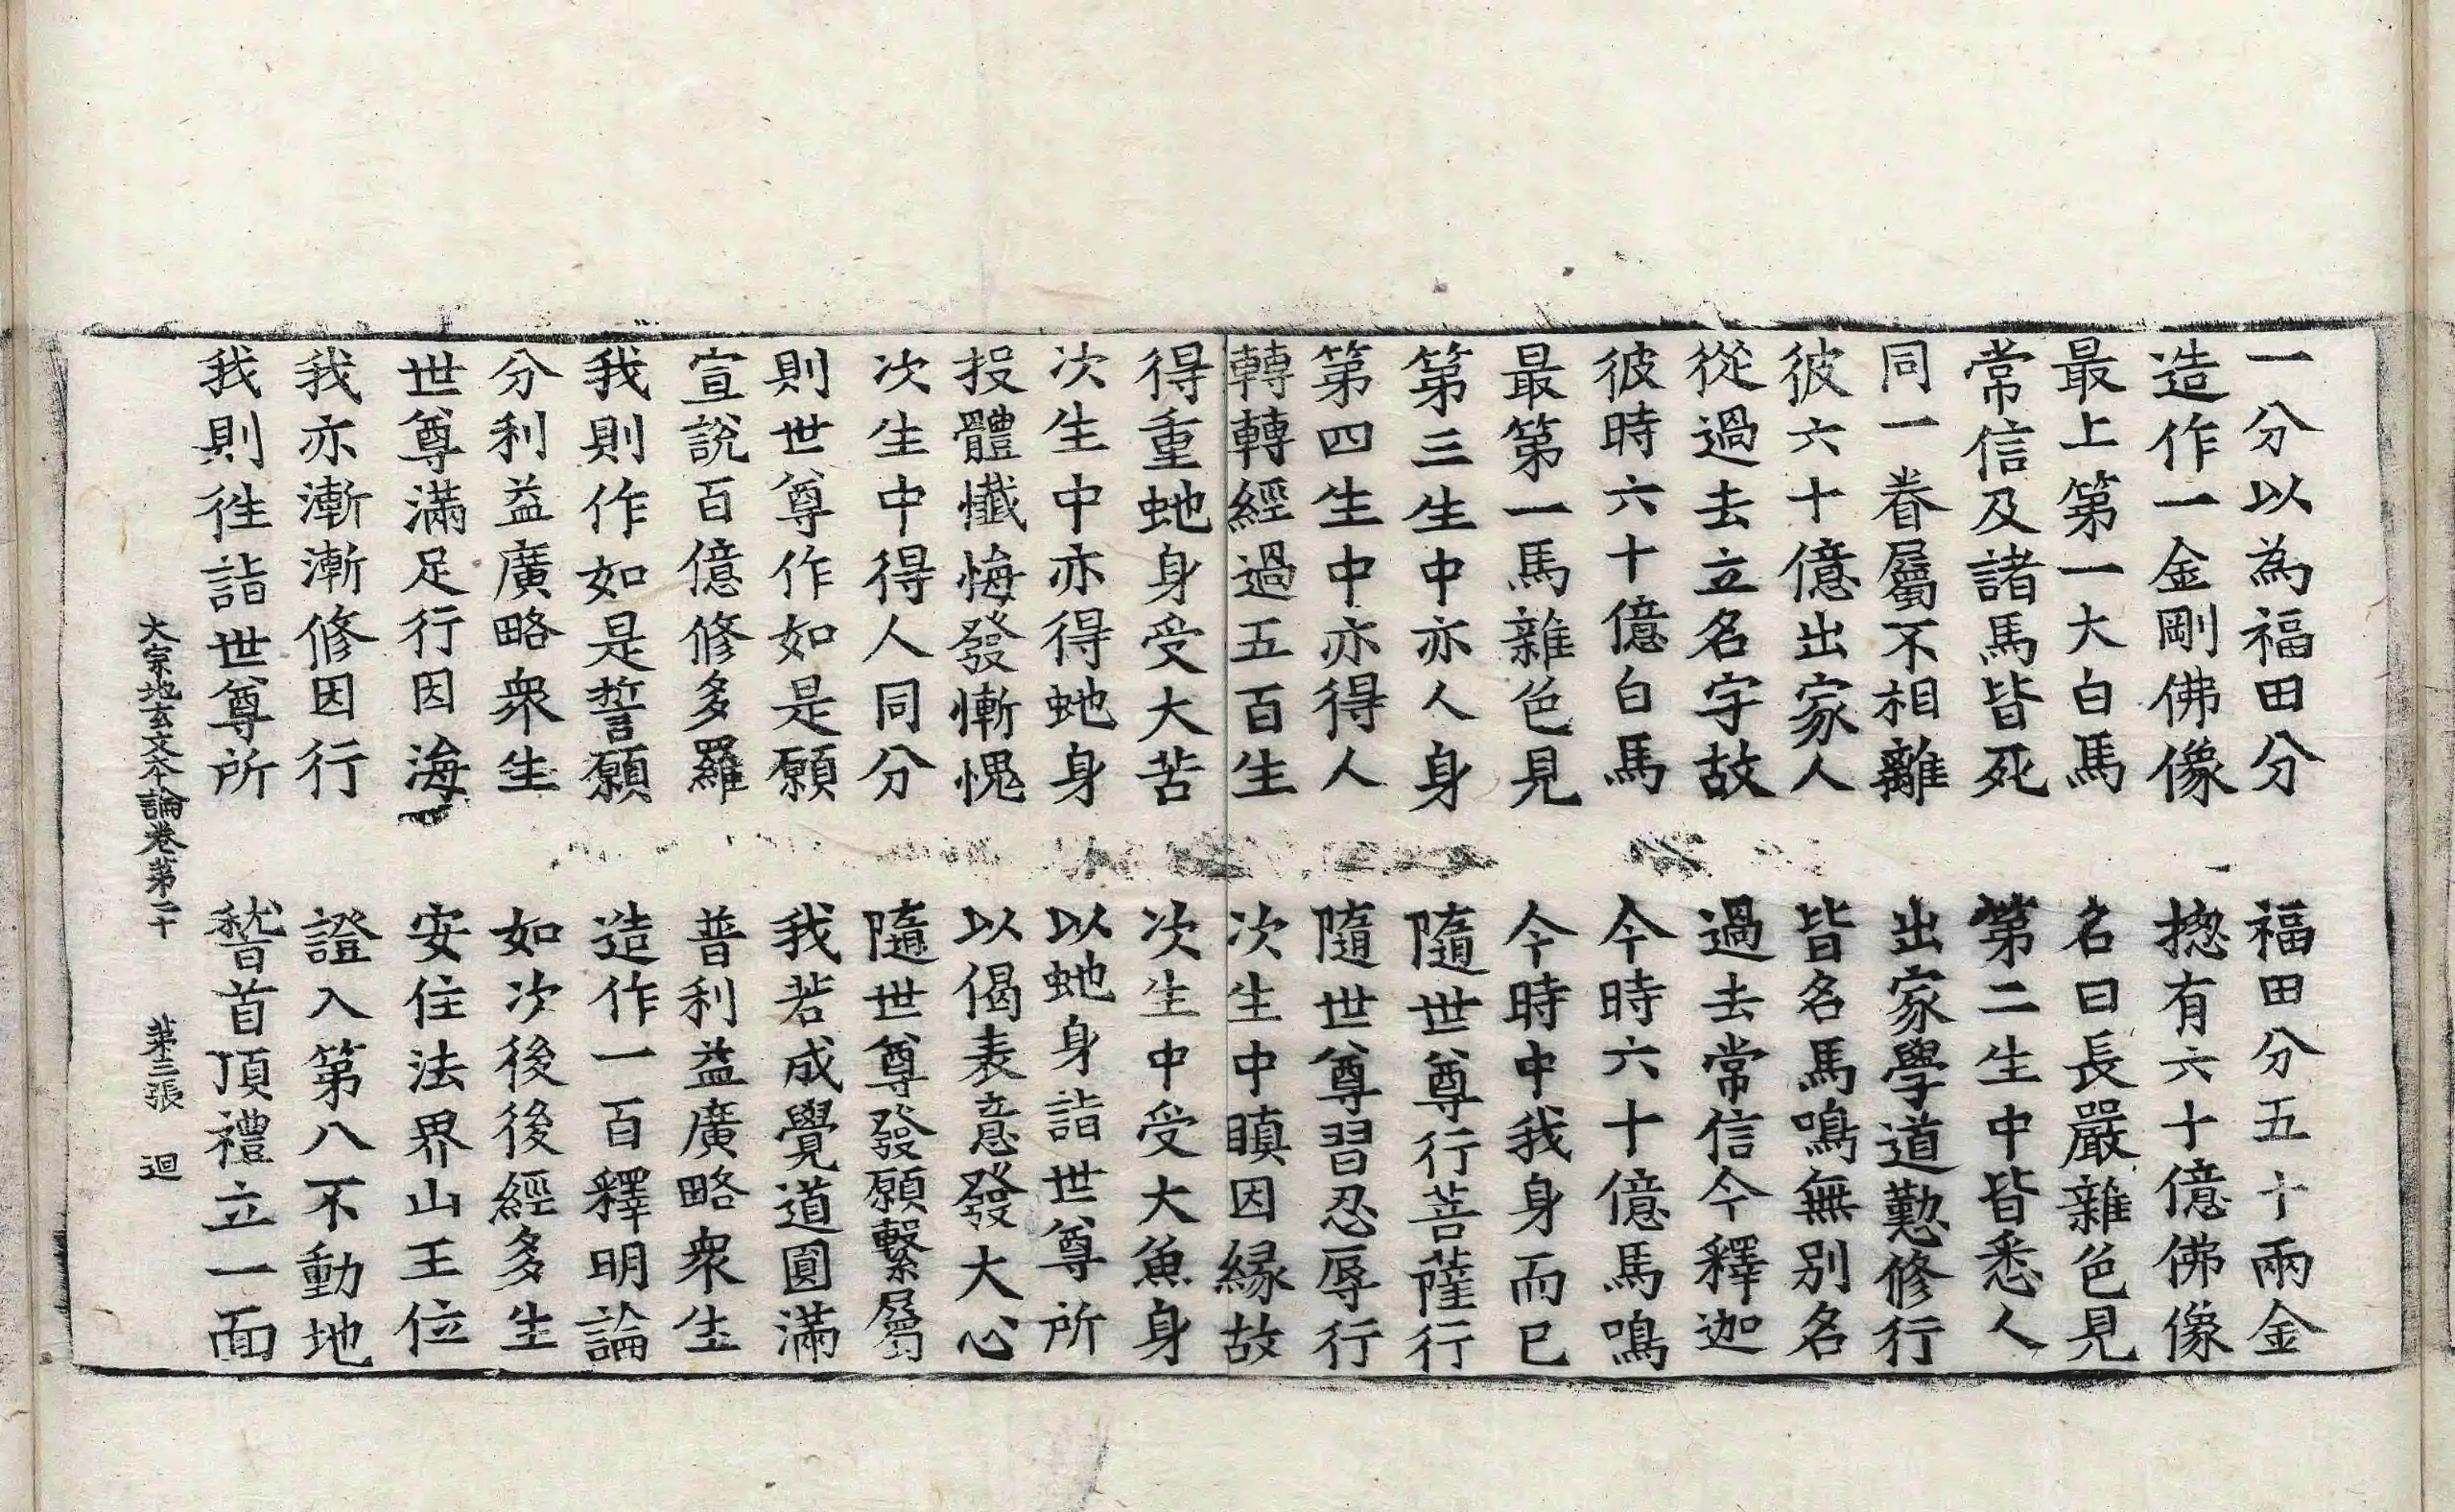 一分以為福田分　福田分五十兩金
造作一金剛佛像　揔有六十億佛像
最上第一大白馬　名曰長嚴雜色見
常信及諸馬皆死　第二生中皆悉人
同一眷屬不相離　出家學道懃修行
彼六十億出家人　皆名馬鳴無別名
從過去立名字故　過去常信今釋迦
彼時六十億白馬　今時六十億馬鳴
最第一馬雜色見　今時中我身而已
第三生中亦人身　隨世尊行菩薩行
第四生中亦得人　隨世尊習忍辱行
轉轉經過五百生　次生中瞋因緣故
得重虵身受大苦　次生中受大魚身
次生中亦得虵身　以虵身詣世尊所
投體懺悔發慚愧　以偈表意發大心
次生中得人同分　隨世尊發願繫屬
則世尊作如是願　我若成覺道圓滿
宣說百億修多羅　普利益廣略衆生
我則作如是誓願　造作一百釋明論
分利益廣略衆生　如次後後經多生
世尊滿足行因海　安住法界山王位
我亦漸漸修因行　證入第八不動地
我則徃詣世尊所　䭫首頂禮立一面
大宗地玄文本論卷第二十　第三張　迴